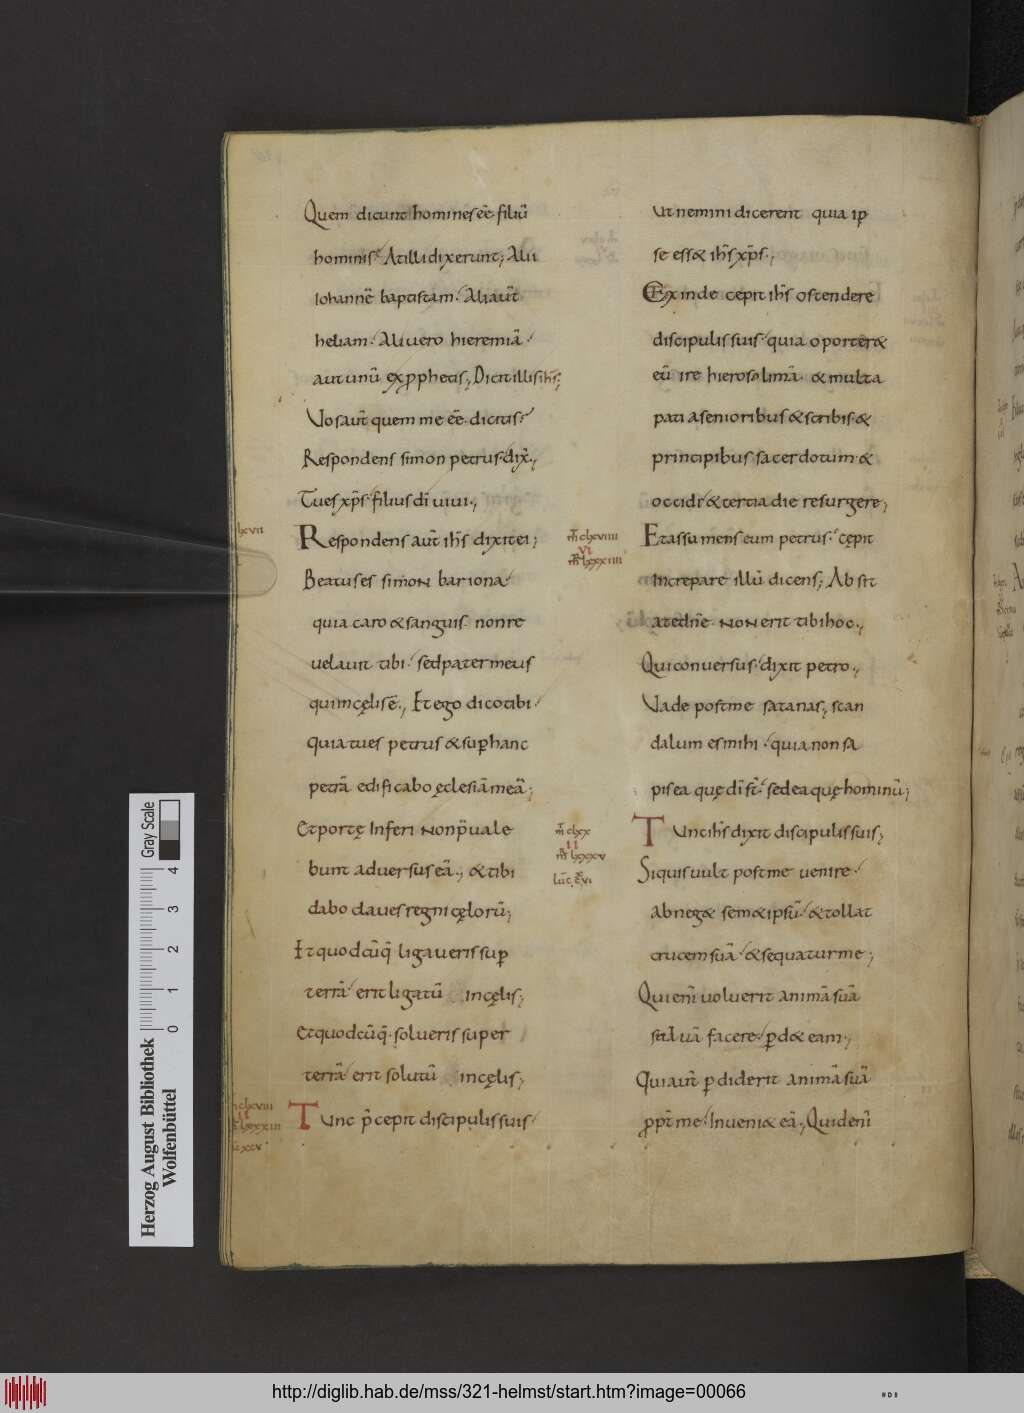 Quem dicunt homines eē filiū
hominis; At illi dixerunt; Alii
Iohannē baptistam. Alii aut̄
heliam. Alii vero hieremiā.
aut unū ex prophetis; Dicit illis ihs̄;
Vos aut̄ quem me eē. dicitis?
Respondens simon petrus dix̄.,
Tu es xp̄s filius dī uiui.,
lxvii
Respondens aut̄ ihs̄ dixit ei;
Beatus es simon bariona
quia caro & sanguis non re
uelauit tibi. sed pater meus
qui in cęlis ē., Et ego dico tibi.
quia tu es petrus & sup hanc
petrā edificabo ęclesiā meā;
Et portę Inferi non p̄uale
bunt aduersus eā.; & tibi
dabo claues regni cęlorū;
Et quodcūq̄ ligaueris sup
terrā erit ligatū in cęlis;
Et quodcūq̄. solueris super
terrā erit solutū in cęlis;
clxviii
lxxxiii
Tunc p̄cepit discipulis suis
Ut nemini dicerent quia ip
se ess& ihs̄ xp̄s.,
Exinde cepit ihs̄ ostendere
discipulis suis quia oporter&
eū ire hierosolimā. & multa
pati a senioribus & scribis &
principibus sacerdotum. &
occidi & tertia die resurgere;
m̄ clxviiii
vi
m̄r lxxxiiii
Et assumens eum petrus. cępit
increpare illū dicens; Absit
a te dn̄e. non erit tibi hoc.,
Qui conuersus dixit petro.,
Vade post me satanas; scan
dalum es mihi. quia non sa
pis ea quę dī st̄. sed ea quę hominū;
m̄ clxx
ii
m̄r lxxxv
luc̄. xcvi
Tunc ihs̄ dixit discipulis suis;
Si quis vult post me uenire.
abneg& sem&ipsū. & tollat
crucem suā. & sequatur me;
Qui enī uoluerit animā suā
saluā facere. pd& eam.,
Qui aut̄ pdiderit animā suā
ppt̄ me. Inueni& eā., Quid enī
Herzog August Bibliothek
Wolfenbüttel
0 1 2 3 4
Gray Scale
http://diglib.hab.de/mss/321-helmst/start.htm?image=00066